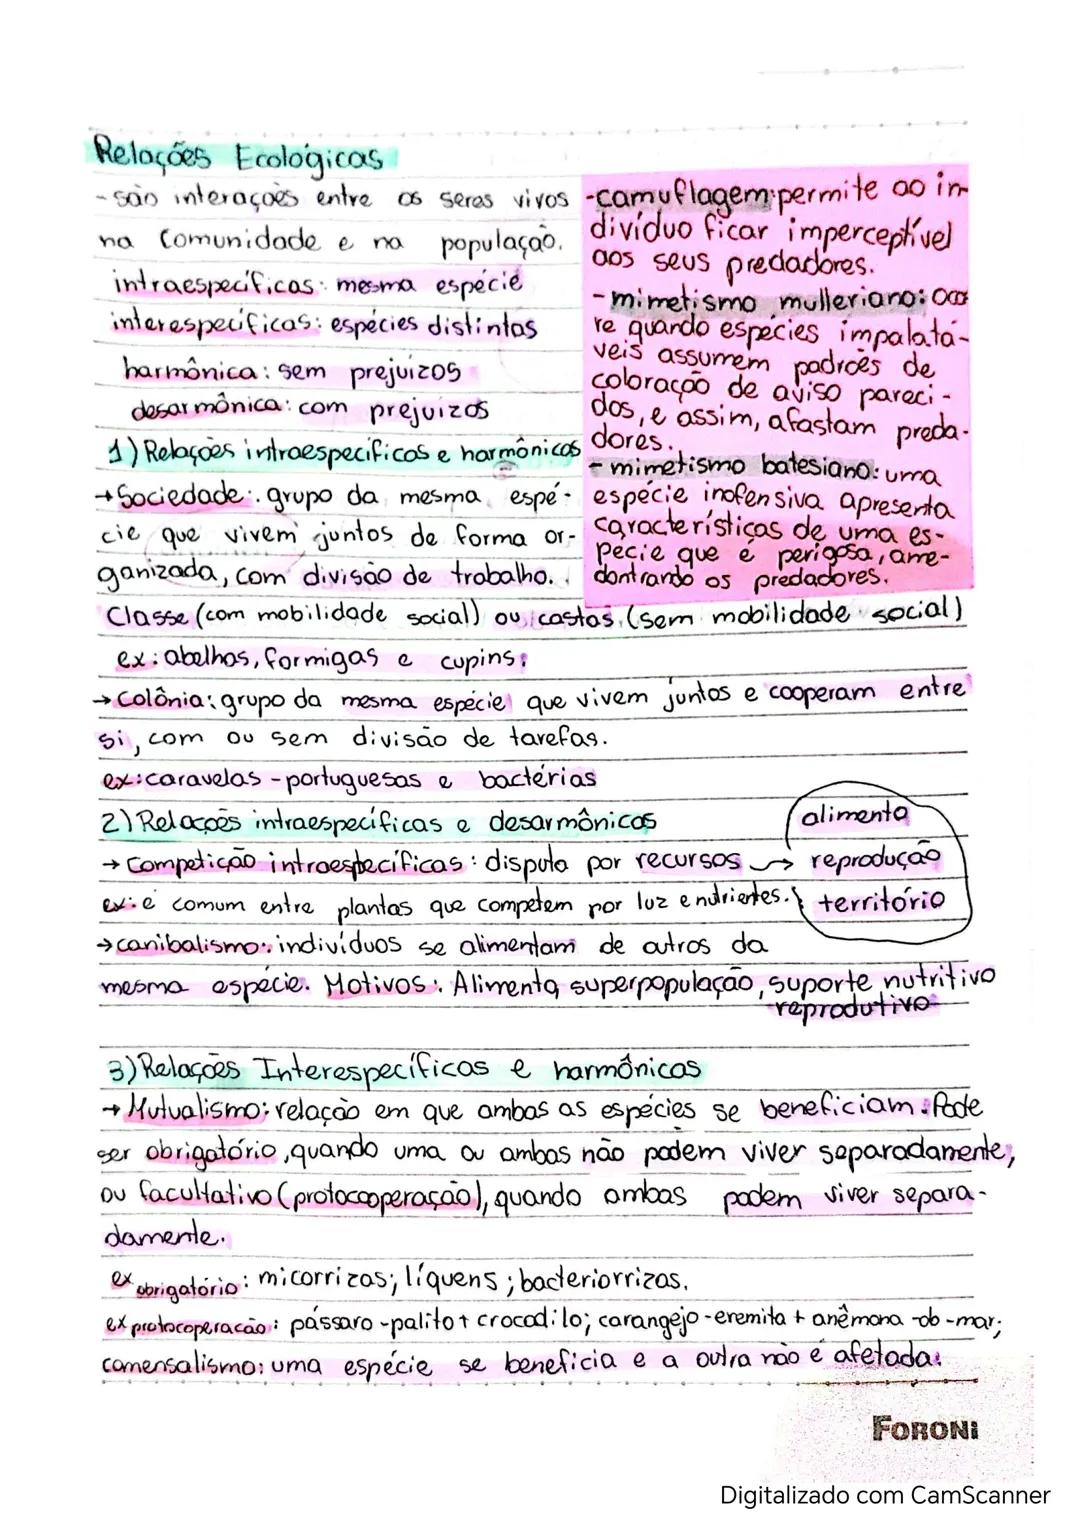 Relações Ecológicas
- são interações entre os seres vivos
na comunidade e na população.
intraespecíficas: mesma espécie
interespecíficas: espécies distintas
harmônica: sem prejuízos
desarmônica: com prejuízos
1) Relações intraespecíficas e harmônicas
→ Sociedade: grupo da mesma espé-
cie que vivem juntos de forma or-
ganizada, com divisão de trabalho.
Classe (com mobilidade social) ou castas (sem mobilidade social)
ex: abelhas, formigas e cupins.
-camuflagem: permite ao in-
divíduo ficar imperceptível
aos seus predadores.
- mimetismo mulleriano: ocor
re quando espécies impalatá-
veis assumem padrões de
coloração de aviso pareci-
dos, e assim, afastam preda-
dores.
- mimetismo batesiano: uma
espécie inofensiva apresenta
características de uma es-
pecie que é perigosa, ame-
dontrando os predadores.
→ Colônia: grupo da mesma espécie que vivem juntos e cooperam entre
si, com ou sem divisão de tarefas.
ex: caravelas - portuguesas e bactérias
2) Relações intraespecíficas e desarmônicas
→ Competição intraespecíficas: disputa por recursos → alimento
reprodução
território
ex: é comum entre plantas que competem por luz e nutrientes.
→ canibalismo: indivíduos se alimentam de outros da
mesma espécie. Motivos: Alimento, superpopulação, suporte nutritivo
reprodutivo
3) Relações Interespecíficas e harmônicas
→ Mutualismo: relação em que ambas as espécies se beneficiam. Pode
ser obrigatório, quando uma ou ambas não podem viver separadamente,
ou facultativo (protocooperação), quando ambas podem viver separa-
damente.
ex obrigatório: micorrizas; líquens; bacteriorrizas.
ex protocoperacão: pássaro-palito + crocodilo; carangejo-eremita + anêmona-do-mar;
comensalismo: uma espécie se beneficia e a outra não é afetada.
FORONI
Digitalizado com CamScanner